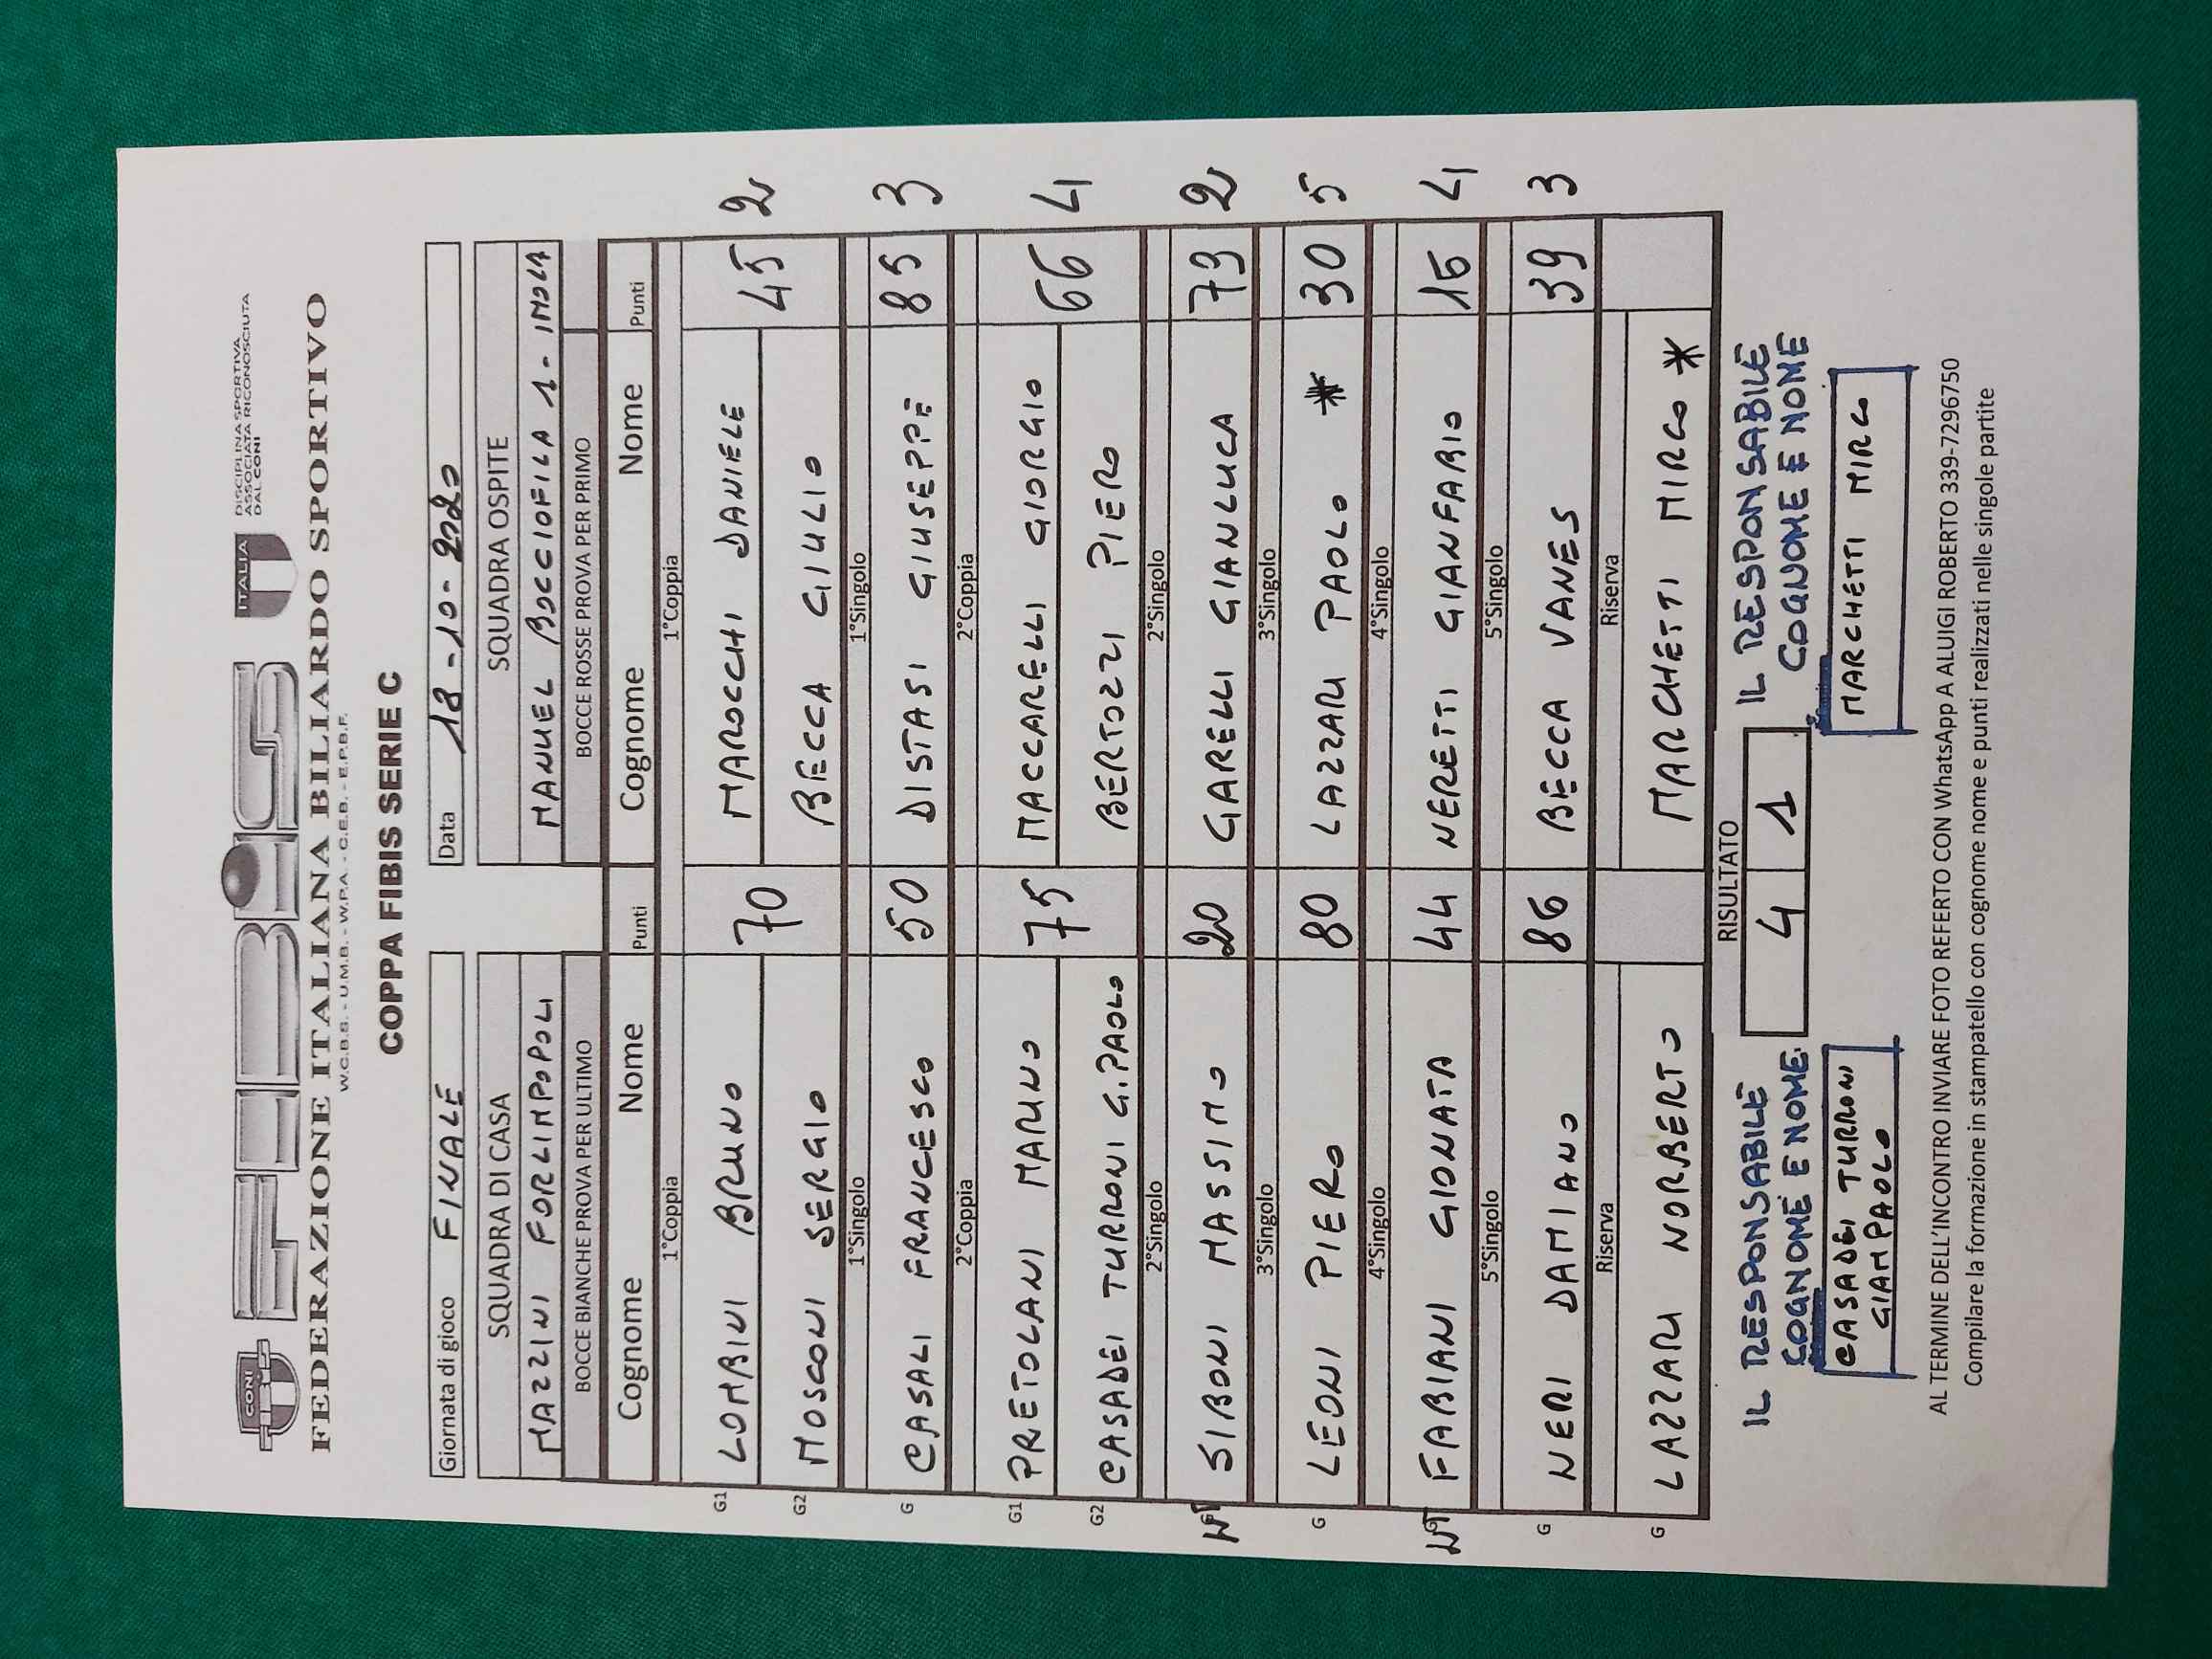 CONI
FIBiS
ITALIA
DISCIPLINA SPORTIVA
ASSOCIATA RICONOSCIUTA
DAL CONI
FEDERAZIONE ITALIANA BILIARDO SPORTIVO
W.C.B.S. - U.M.B. - W.P.A. - C.E.B. - E.P.B.F.
COPPA FIBIS SERIE C
Giornata di gioco FINALE Data 18-10-2020
SQUADRA DI CASA SQUADRA OSPITE
MAZZINI FORLIMPOPOLI MANUEL BOCCIOFILA 1 - IMOLA
BOCCE BIANCHE PROVA PER ULTIMO BOCCE ROSSE PROVA PER PRIMO
Cognome Nome Punti Cognome Nome Punti
1°Coppia 1°Coppia
G1 LOMBINI BRUNO 70 MAROCCHI DANIELE 45 2
G2 MOSCONI SERGIO BECCA GIULIO
1°Singolo 1°Singolo
G CASALI FRANCESCO 50 DISTASI GIUSEPPE 85 3
2°Coppia 2°Coppia
G1 PRETOLANI MARINO 75 MACCARELLI GIORGIO 66 4
G2 CASADEI TURRONI G.PAOLO BERTOZZI PIERO
2°Singolo 2°Singolo
SIBONI MASSIMO 20 GARELLI GIANLUCA 79 2
3°Singolo 3°Singolo
G LEONI PIERO 80 LAZZARI PAOLO * 30 5
4°Singolo 4°Singolo
FABIANI GIONATA 44 NERETTI GIANFABIO 15 4
5°Singolo 5°Singolo
G NERI DAMIANO 86 BECCA VANES 39 3
Riserva Riserva
G LAZZARI NORBERTO MARCHETTI MIRCO *
RISULTATO
4 1
IL RESPONSABILE IL RESPONSABILE
COGNOME E NOME. COGNOME E NOME
CASADEI TURRONI MARCHETTI MIRCO
GIAMPAOLO
AL TERMINE DELL'INCONTRO INVIARE FOTO REFERTO CON WhatsApp A ALUIGI ROBERTO 339-7296750
Compilare la formazione in stampatello con cognome nome e punti realizzati nelle singole partite